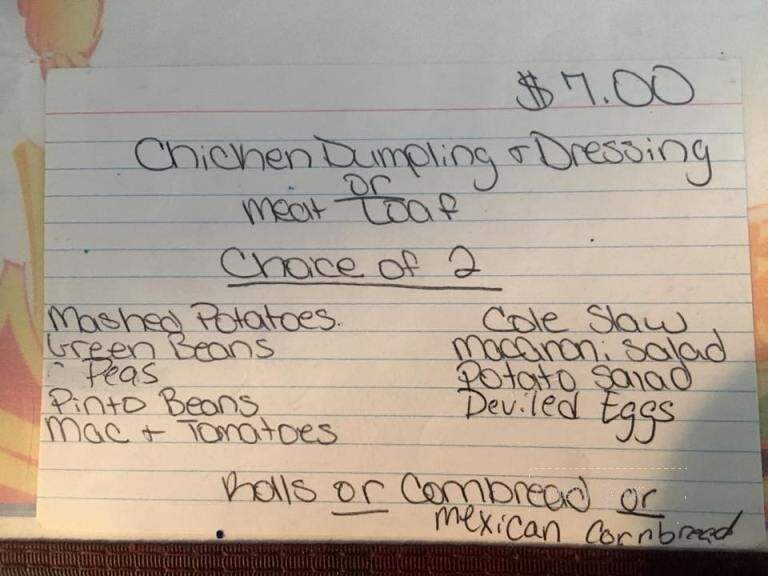 $7.00
Chichen Dumpling & Dressing
or
meat Loaf
Choice of 2
Mashed Potatoes.
Green Beans
Peas
Pinto Beans
Mac + Tomatoes
Cole Slaw
macaroni salad
Potato salad
Deviled Eggs
Rolls or Cornbread or
mexican Cornbread